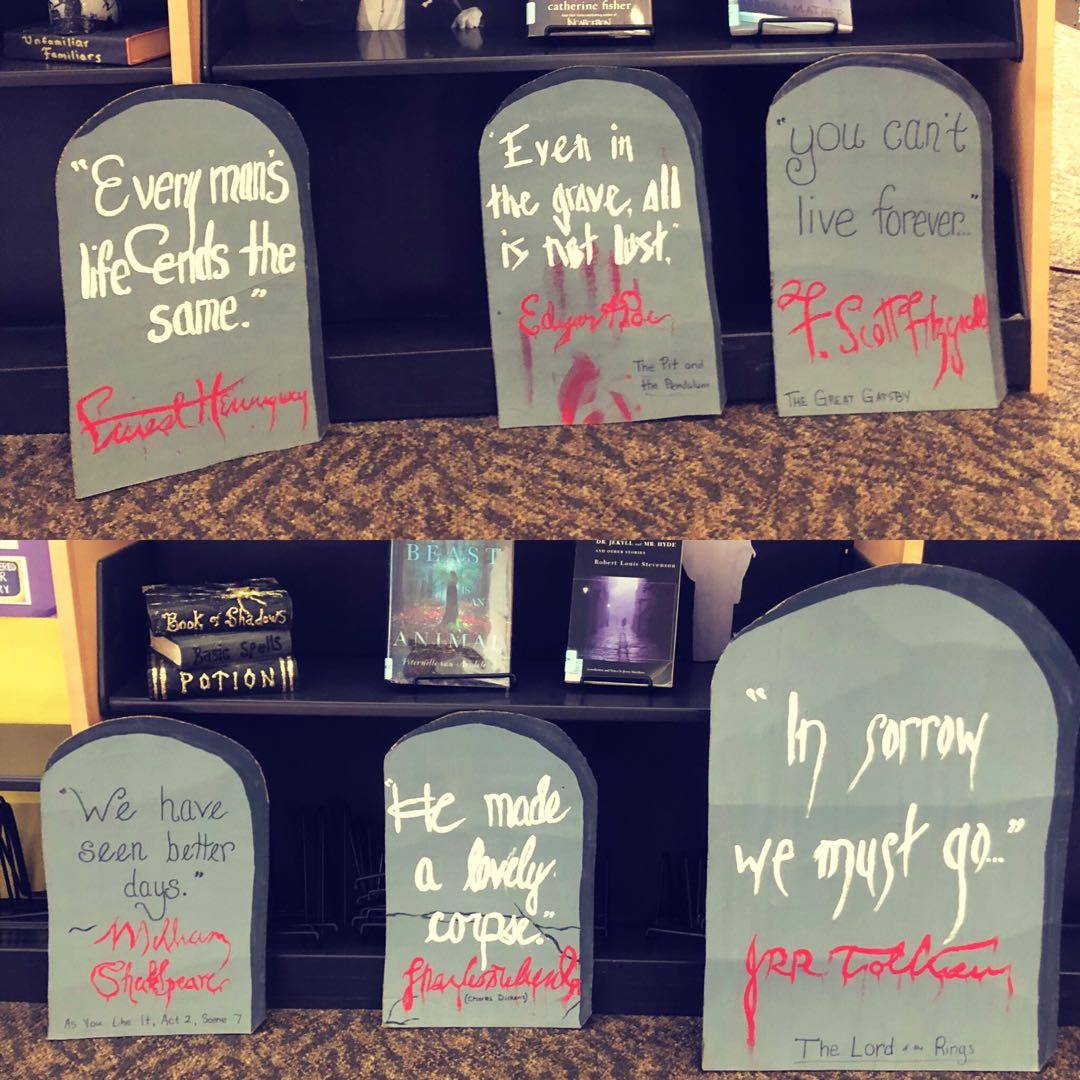 Unfamiliar
Familiars
catherine fisher
INCARCERON
"Every man's
life ends the
same."
Ernest Hemingway
"Even in
the grave, all
is not lost."
Edgar A Poe
The Pit and
the Pendulum
"you can't
live forever..."
F. Scott Fitzgerald
THE GREAT GATSBY
Book of Shadows
Basic Spells
POTION
BEAST
IS
AN
ANIMAL
DR. JEKYLL and MR. HYDE
AND OTHER STORIES
Robert Louis Stevenson
"We have
seen better
days."
William
Shakespeare
As You Like It, Act 2, Scene 7
"He made
a lovely
corpse."
Charles Dickens
(Charles Dickens)
"In sorrow
we must go..."
JRR Tolkien
The Lord of the Rings